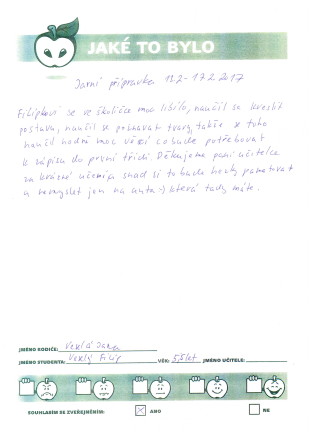 JAKÉ TO BYLO
Jarní přípravka 13.2 - 17.2.2017
Filípkovi se ve školičce moc líbilo, naučil se kreslit
postavu, naučil se poznávat tvary, takže se toho
naučil hodně moc věcí co bude potřebovat
k zápisu do první třídi. Děkujeme paní učitelce
za krásné učení a snad si to bude hezky pamatovat
a nemyslet jen na auta :-) která tady máte.
JMÉNO RODIČE: Veselá Jana
JMÉNO STUDENTA: Veselý Filip VĚK: 5,5 let JMÉNO UČITELE:
SOUHLASÍM SE ZVEŘEJNĚNÍM: ANO NE